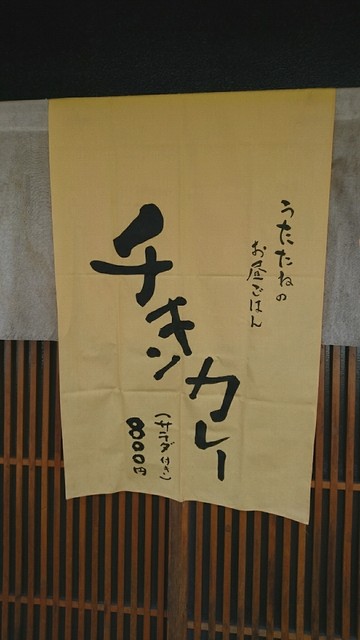 うたたねの
お昼ごはん
チキン
カレー
(サラダ付き)
800円